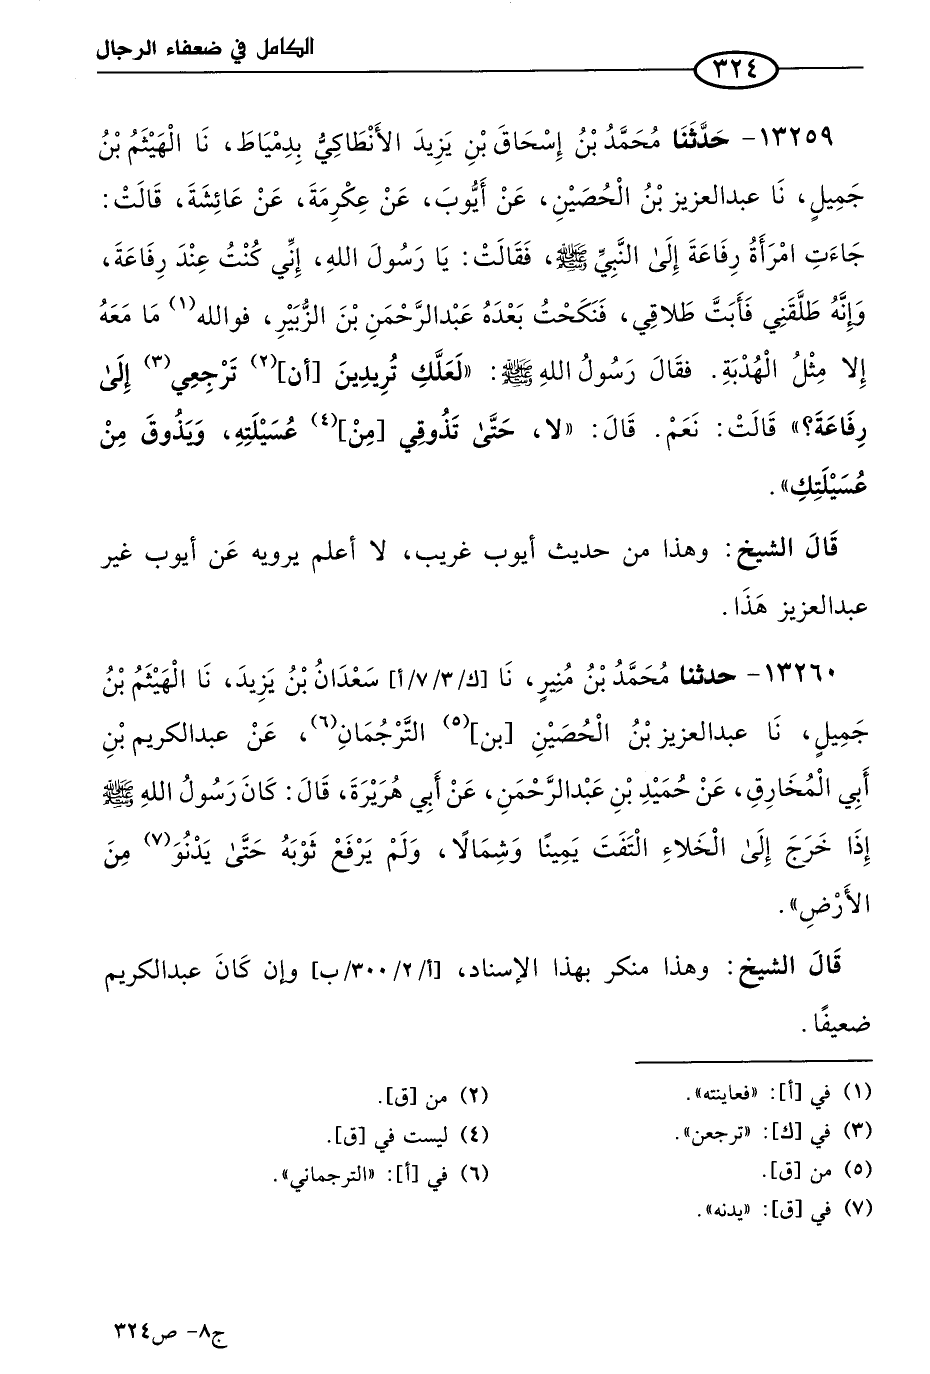 الكامل في ضعفاء الرجال
٣٢٤
١٣٢٥٩- حَدَّثَنَا مُحَمَّدُ بْنُ إِسْحَاقَ بْنِ يَزِيدَ الأَنْطَاكِيُّ بِدِمْيَاطَ، نَا الْهَيْثَمُ بْنُ
جَمِيلٍ، نَا عبدالعزيز بْنُ الْحُصَيْنِ، عَنْ أَيُّوبَ، عَنْ عِكْرِمَةَ، عَنْ عَائِشَةَ، قَالَتْ:
جَاءَتِ امْرَأَةُ رِفَاعَةَ إِلَىٰ النَّبِيِّ ﷺ، فَقَالَتْ: يَا رَسُولَ اللهِ، إِنِّي كُنْتُ عِنْدَ رِفَاعَةَ،
وَإِنَّهُ طَلَّقَنِي فَأَبَتَّ طَلاقِي، فَنَكَحْتُ بَعْدَهُ عَبْدَالرَّحْمَنِ بْنَ الزُّبَيْرِ، فوالله(١) مَا مَعَهُ
إِلا مِثْلُ الْهُدْبَةِ. فقَالَ رَسُولُ اللهِ ﷺ: «لَعَلَّكِ تُرِيدِينَ [أن](٢) تَرْجِعِي(٣) إِلَىٰ
رِفَاعَةَ؟» قَالَتْ: نَعَمْ. قَالَ: «لا، حَتَّىٰ تَذُوقِي [مِنْ](٤) عُسَيْلَتِهِ، وَيَذُوقَ مِنْ
عُسَيْلَتِكِ».
قَالَ الشيخ: وهذا من حديث أيوب غريب، لا أعلم يرويه عَن أيوب غير
عبدالعزيز هَذَا.
١٣٢٦٠- حدثنا مُحَمَّدُ بْنُ مُنِيرٍ، نَا [ك/٧/٣/أ] سَعْدَانُ بْنُ يَزِيدَ، نَا الْهَيْثَمُ بْنُ
جَمِيلٍ، نَا عبدالعزيز بْنُ الْحُصَيْنِ [بن](٥) التَّرْجُمَانِ(٦)، عَنْ عبدالكريم بْنِ
أَبِي الْمُخَارِقِ، عَنْ حُمَيْدِ بْنِ عَبْدالرَّحْمَنِ، عَنْ أَبِي هُرَيْرَةَ، قَالَ: كَانَ رَسُولُ اللهِ ﷺ
إِذَا خَرَجَ إِلَىٰ الْخَلاءِ الْتَفَتَ يَمِينًا وَشِمَالًا، وَلَمْ يَرْفَعْ ثَوْبَهُ حَتَّىٰ يَدْنُوَ(٧) مِنَ
الأَرْضِ».
قَالَ الشيخ: وهذا منكر بهذا الإسناد، [أ/٣٠٠/٢/ب] وإن كَانَ عبدالكريم
ضعيفًا.
(١) في [أ]: «فعاينته».
(٢) من [ق].
(٣) في [ك]: «ترجعن».
(٤) ليست في [ق].
(٥) من [ق].
(٦) في [أ]: «الترجماني».
(٧) في [ق]: «يدنه».
ج٨- ص٣٢٤